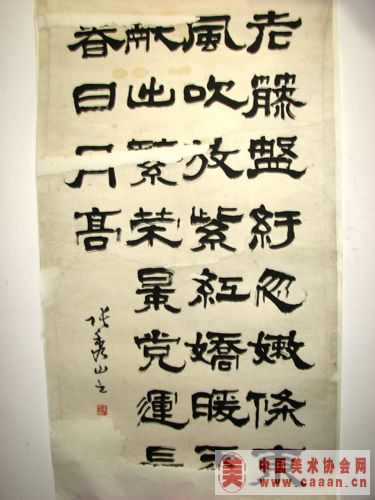 老藤盤紆忽嫩條東
風吹放紫紅嬌暖天
献出繁荣景党運長
春日月高
张秀山书
中国美术协会网
www.caaan.cn